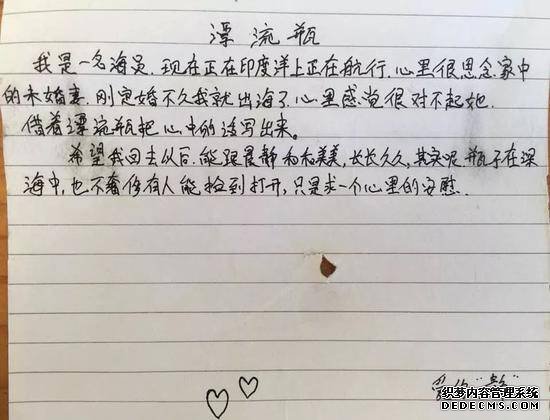 漂流瓶
我是一名海员,现在正在印度洋上正在航行,心里很思念家中
的未婚妻,刚定婚不久我就出海了,心里感觉很对不起她.
借着漂流瓶把心中的话写出来。
希望我回去以后,能跟晨静和和美美,长长久久,其实呢瓶子在深
海中,也不奢侈有人能捡到打开,只是求一个心里的安慰.
爱你"静"
织梦内容管理系统
DEDECMS.COM